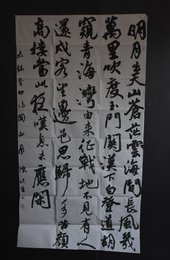 明月出天山蒼茫雲海間長風幾
萬里吹度玉門關漢下白登道胡
窺青海灣由來征戰地不見有人
還戍客望邊邑思歸多苦顏
高樓當此夜嘆息未應閑